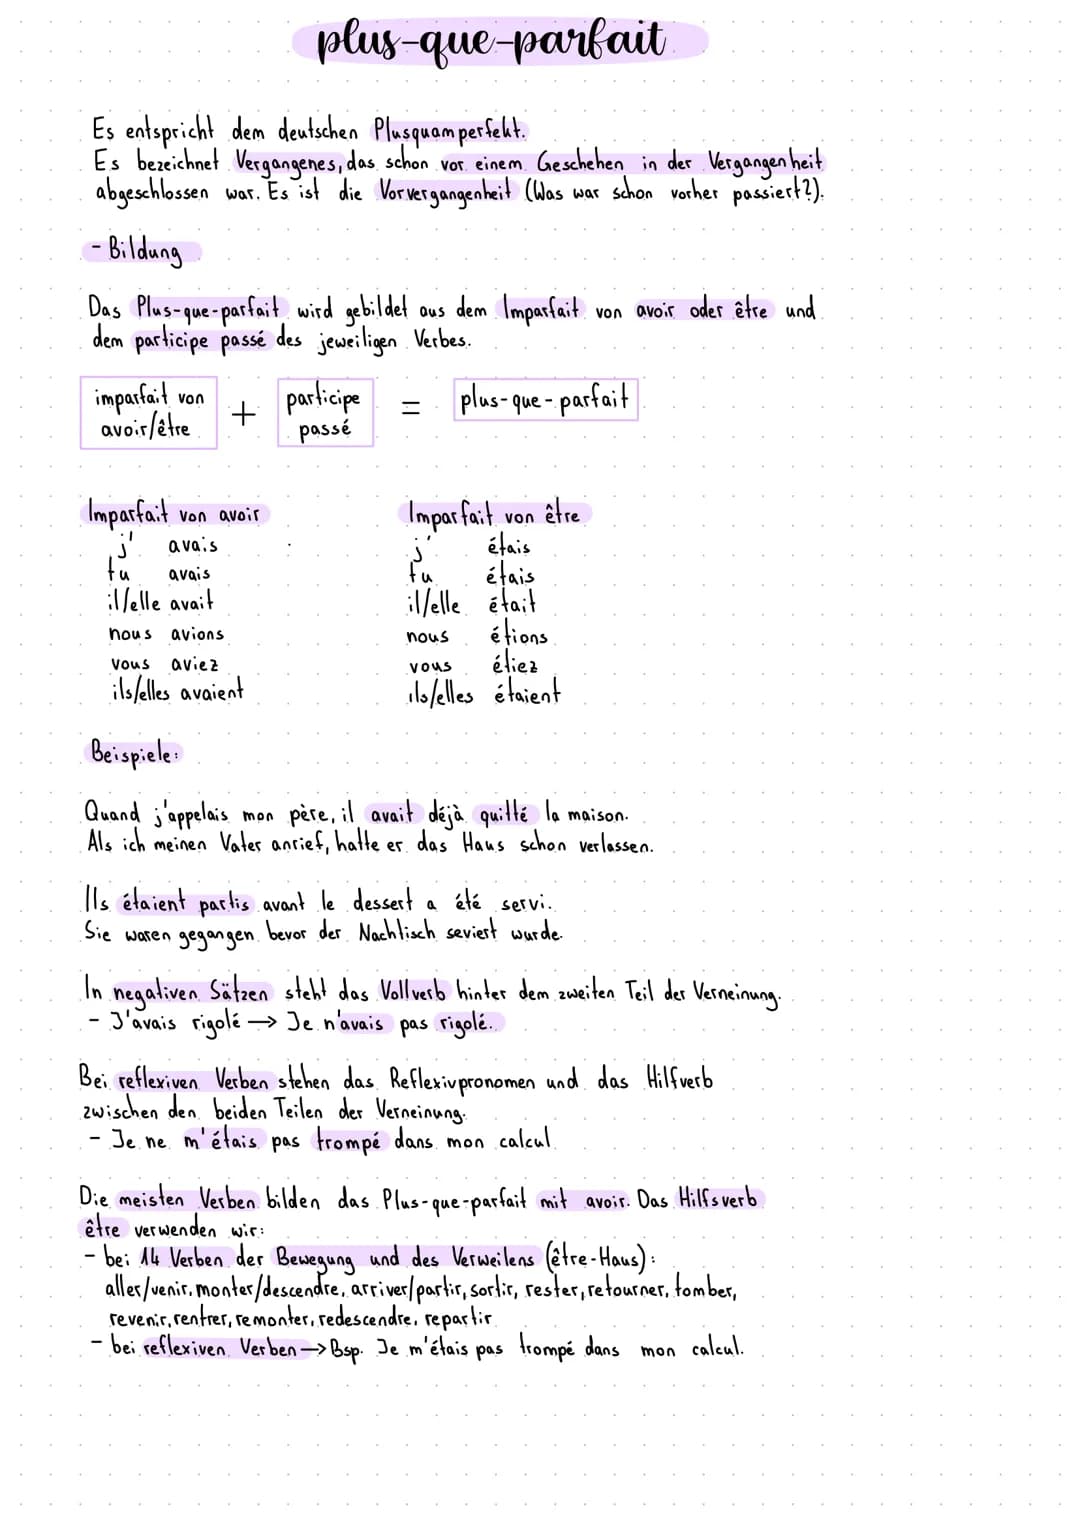 plus-que-parfait
Es entspricht dem deutschen Plusquamperfekt.
Es bezeichnet Vergangenes, das schon vor einem Geschehen in der Vergangenheit
abgeschlossen war. Es ist die Vorvergangenheit (Was war schon vorher passiert?).
- Bildung
Das Plus-que-parfait wird gebildet aus dem Imparfait von avoir oder être und
dem participe passé des jeweiligen Verbes.
imparfait von avoir/être + participe passé = plus-que-parfait
Imparfait von avoir
j' avais
tu avais
il/elle avait
nous avions
vous aviez
ils/elles avaient
Imparfait von être
j' étais
tu étais
il/elle était
nous étions
vous étiez
ils/elles étaient
Beispiele:
Quand j'appelais mon père, il avait déjà quitté la maison.
Als ich meinen Vater anrief, hatte er das Haus schon verlassen.
Ils étaient partis avant le dessert a été servi.
Sie waren gegangen bevor der Nachtisch seviert wurde.
In negativen Sätzen steht das Vollverb hinter dem zweiten Teil der Verneinung.
- J'avais rigolé → Je n'avais pas rigolé.
Bei reflexiven Verben stehen das Reflexivpronomen und das Hilfverb
zwischen den beiden Teilen der Verneinung.
- Je ne m'étais pas trompé dans mon calcul
Die meisten Verben bilden das Plus-que-parfait mit avoir. Das Hilfsverb
être verwenden wir:
- bei 14 Verben der Bewegung und des Verweilens (être-Haus):
aller/venir, monter/descendre, arriver/partir, sortir, rester, retourner, tomber,
revenir, rentrer, remonter, redescendre, repartir
- bei reflexiven Verben → Bsp. Je m'étais pas trompé dans mon calcul.